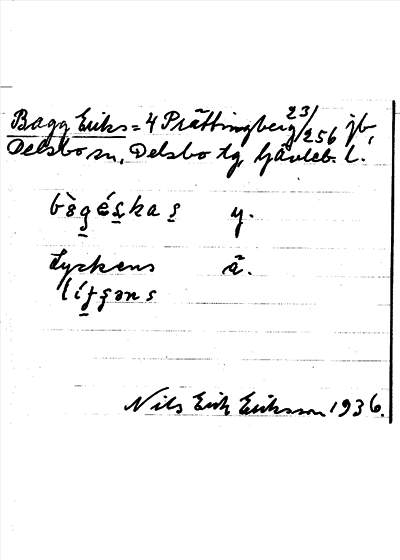 Bagg Eriks = 4 Prättingberg 23/256 jb,
Delsbo sn, Delsbo tg, Gävleb. l.
y.
Lyckens ä.
Nils Erik Eriksson 1936.